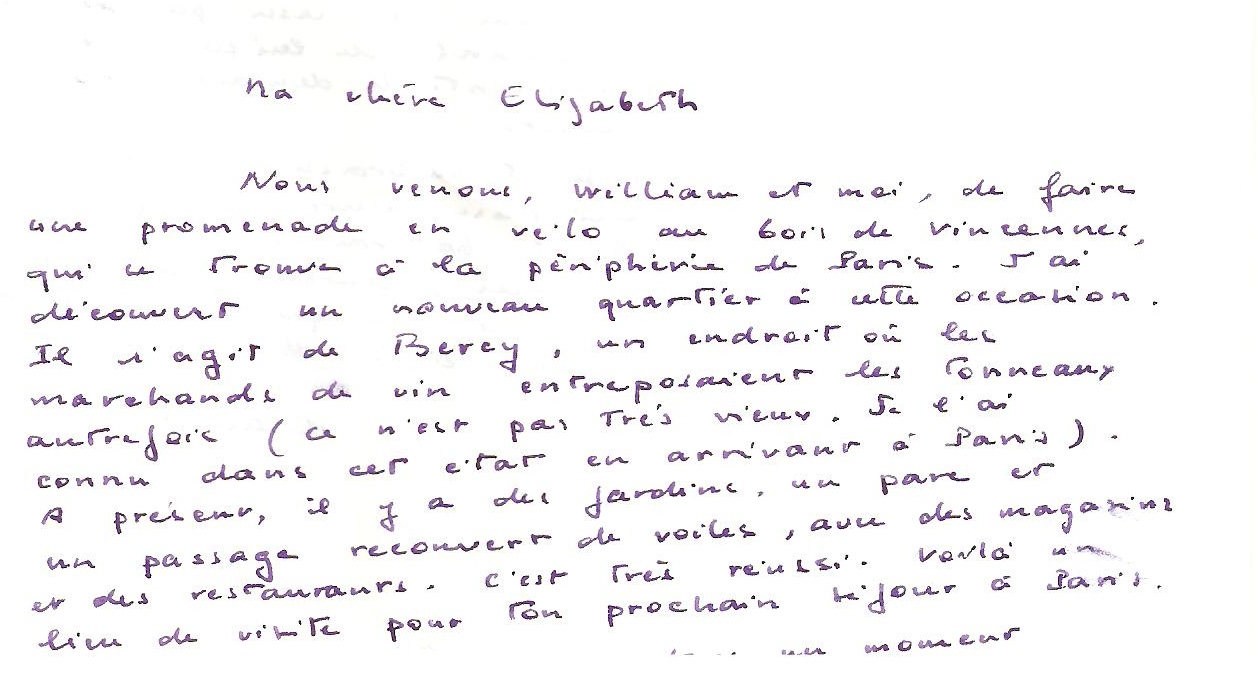 Ma chère Elizabeth
Nous venons, William et moi, de faire
une promenade en vélo au bois de Vincennes,
qui se trouve à la périphérie de Paris. J'ai
découvert un nouveau quartier à cette occasion.
Il s'agit de Bercy, un endroit où les
marchands de vin entreposaient les tonneaux
autrefois (ce n'est pas très vieux. Je l'ai
connu dans cet état en arrivant à Paris).
A présent, il y a des jardins, un parc et
un passage recouvert de voiles, avec des magasins
et des restaurants. C'est très réussi. Voilà un
lieu de visite pour ton prochain séjour à Paris.
un moment